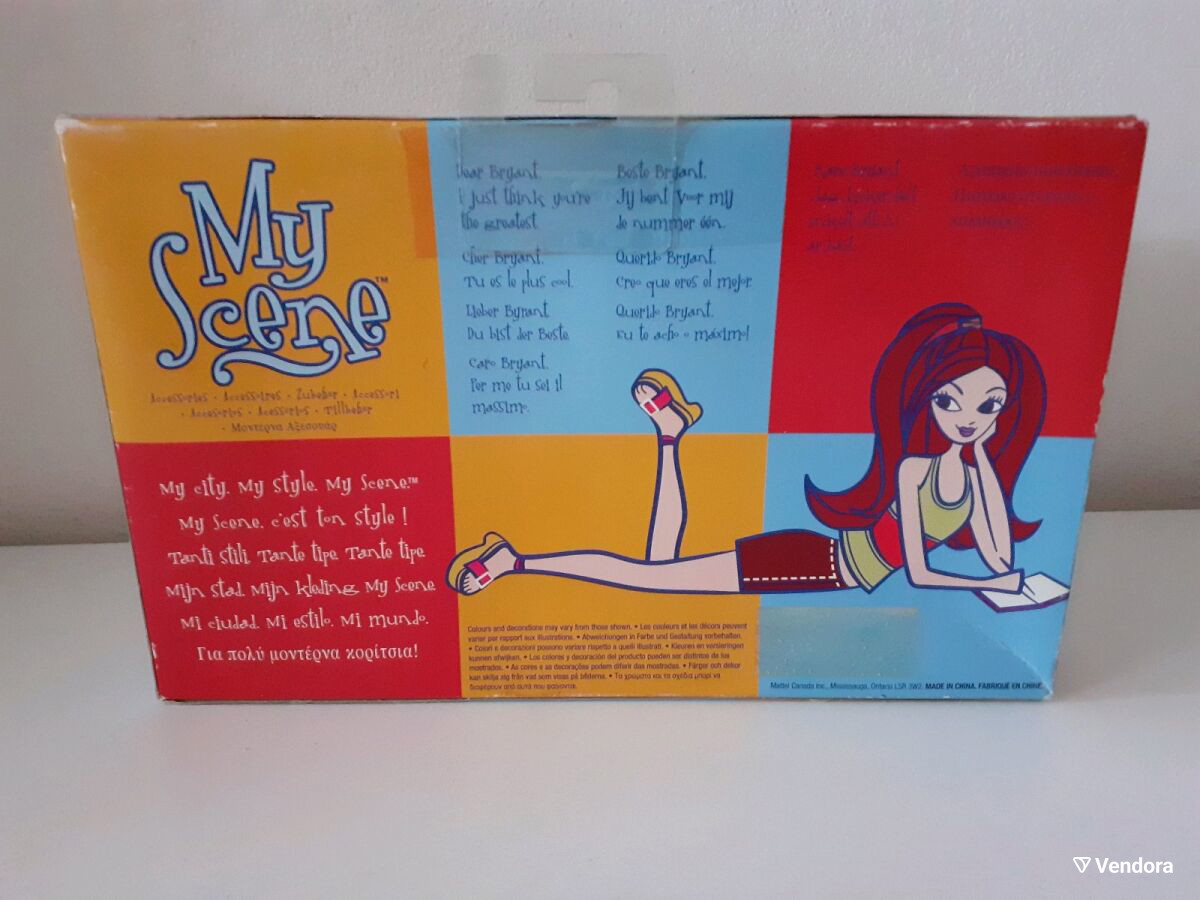 My
Scene™
Accessories • Accessoires • Zubehör • Accessori
• Accesorios • Acessórios • Tillbehör
• Μοντέρνα Αξεσουάρ
My city. My style. My Scene.™
My Scene, c'est ton style !
Tanti stili. Tante tipe. Tante tipe
Mijn stad. Mijn kleding. My Scene
Mi ciudad. Mi estilo. Mi mundo.
Για πολύ μοντέρνα κορίτσια!
Dear Bryant,
I just think you're
the greatest
Cher Bryant,
Tu es le plus cool.
Lieber Byrant
Du bist der Beste
Caro Bryant,
Per me tu sei il
massimo.
Beste Bryant,
Jij bent voor mij
de nummer één.
Querido Bryant,
Creo que eres el mejor
Querido Bryant,
Eu te acho o máximo!
Bryant
Colours and decorations may vary from those shown. • Les couleurs et les décors peuvent
varier par rapport aux illustrations. • Abweichungen in Farbe und Gestaltung vorbehalten.
• Colori e decorazioni possono variare rispetto a quelli illustrati. • Kleuren en versieringen
kunnen afwijken. • Los colores y decoración del producto pueden ser distintos de los
mostrados. • As cores e as decorações podem diferir das mostradas. • Färger och dekor
kan skilja sig från vad som visas på bilderna. • Τα χρώματα και τα σχέδια μπορεί να
διαφέρουν από αυτά που φαίνονται.
Mattel Canada Inc., Mississauga, Ontario L5R 3W2. MADE IN CHINA. FABRIQUÉ EN CHINE.
Vendora